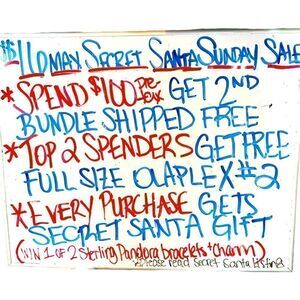 $110 MAX SECRET SANTA SUNDAY SALE
* SPEND $100 Pre-tax GET 2ND
BUNDLE SHIPPED FREE
* TOP 2 SPENDERS GET FREE
FULL SIZE OLAPLEX #2
* EVERY PURCHASE GETS
SECRET SANTA GIFT
(WIN 1 OF 2 Sterling Pandora bracelets + charm)
*Please read Secret Santa listing